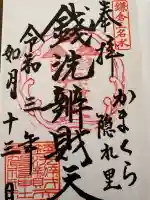 鎌倉五名水
奉拝
かまくら
隠れ里
銭洗辨財天
令和三年
如月十三日